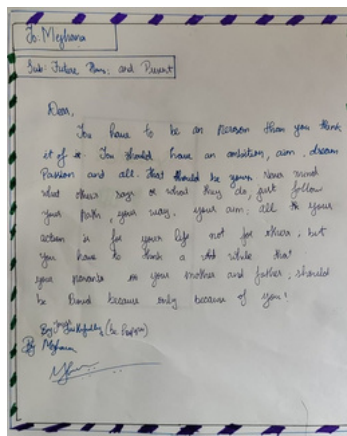 To: Meghana
Sub: Future Plans; and Present
Dear,
You have to be an person than you think
it of it. You should have an ambition, aim, dream
Passion and all. that should be yours. Never mind
what others says or what they do, just follow
your path, your way, your aim; all your
action is for your life not for others, but
you have to think a while that
your parents or your mother and father, should
be Proud because only because of you!
By Meghana